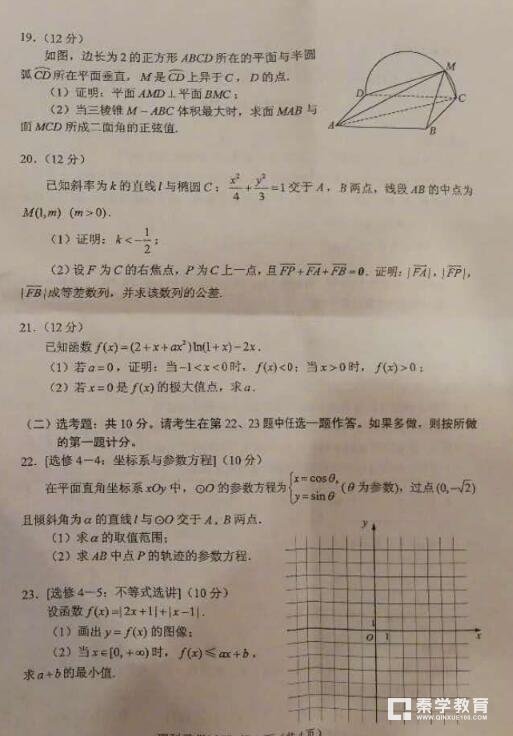 19.(12分)
如图，边长为2的正方形ABCD所在的平面与半圆
弧CD所在平面垂直，M是CD上异于C，D的点.
(1)证明：平面AMD⊥平面BMC；
(2)当三棱锥M-ABC体积最大时，求面MAB与
面MCD所成二面角的正弦值.
M
D
C
A
B
20.(12分)
已知斜率为k的直线l与椭圆C：x²/4+y²/3=1交于A，B两点，线段AB的中点为
M(1,m) (m>0).
(1)证明：k<-1/2；
(2)设F为C的右焦点，P为C上一点，且FP+FA+FB=0. 证明：|FA|，|FP|，
|FB|成等差数列，并求该数列的公差.
21.(12分)
已知函数f(x)=(2+x+ax²)ln(1+x)-2x.
(1)若a=0，证明：当-1<x<0时，f(x)<0；当x>0时，f(x)>0；
(2)若x=0是f(x)的极大值点，求a.
(二)选考题：共10分。请考生在第22、23题中任选一题作答。如果多做，则按所做
的第一题计分。
22.[选修4-4：坐标系与参数方程](10分)
在平面直角坐标系xOy中，⊙O的参数方程为{x=cosθ, y=sinθ (θ为参数)，过点(0,-√2)
且倾斜角为α的直线l与⊙O交于A，B两点.
(1)求α的取值范围；
(2)求AB中点P的轨迹的参数方程.
23.[选修4-5：不等式选讲](10分)
设函数f(x)=|2x+1|+|x-1|.
(1)画出y=f(x)的图像；
(2)当x∈[0,+∞)时，f(x)≤ax+b，
求a+b的最小值.
y
1
O 1 x
秦学教育
WWW.QINXUE100.COM